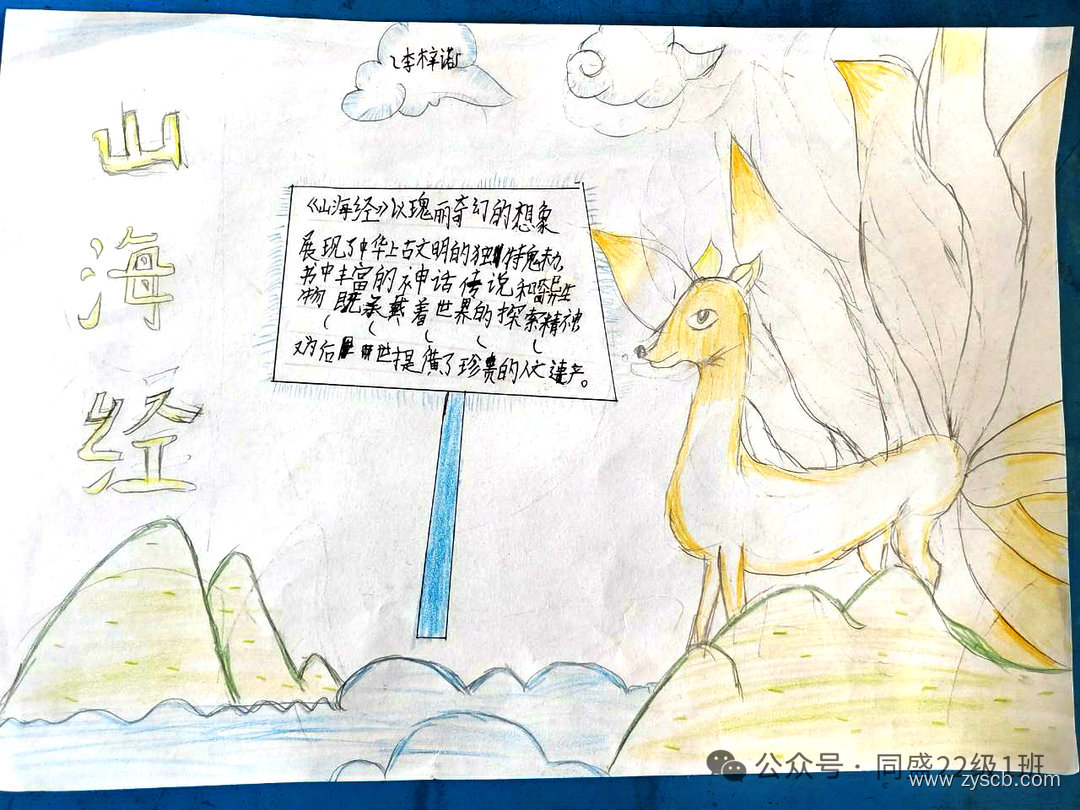 李梓诺
山
海
经
《山海经》以瑰丽奇幻的想象
展现了中华上古文明的独特魅力,
书中丰富的神话传说和奇异生
物 既承载着世界的探索精神
又为后世提供了珍贵的人文遗产。
公众号·同盛22级1班
www.zyscb.com